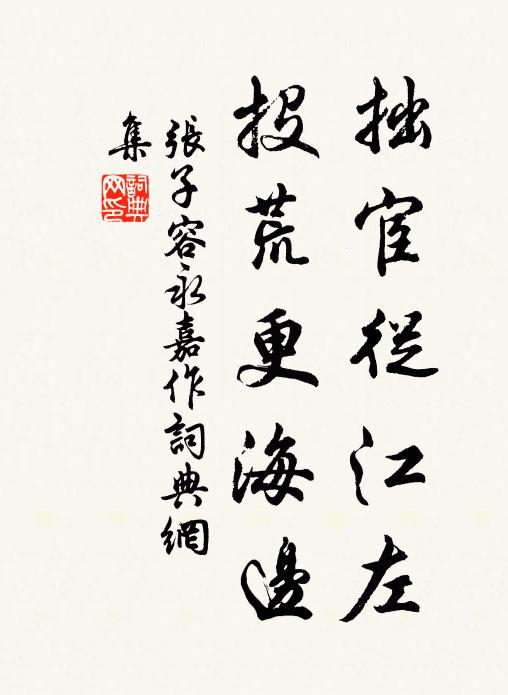 拙宦從江左
投荒更海邊
張子容永嘉作詞典網
集
詞典網印